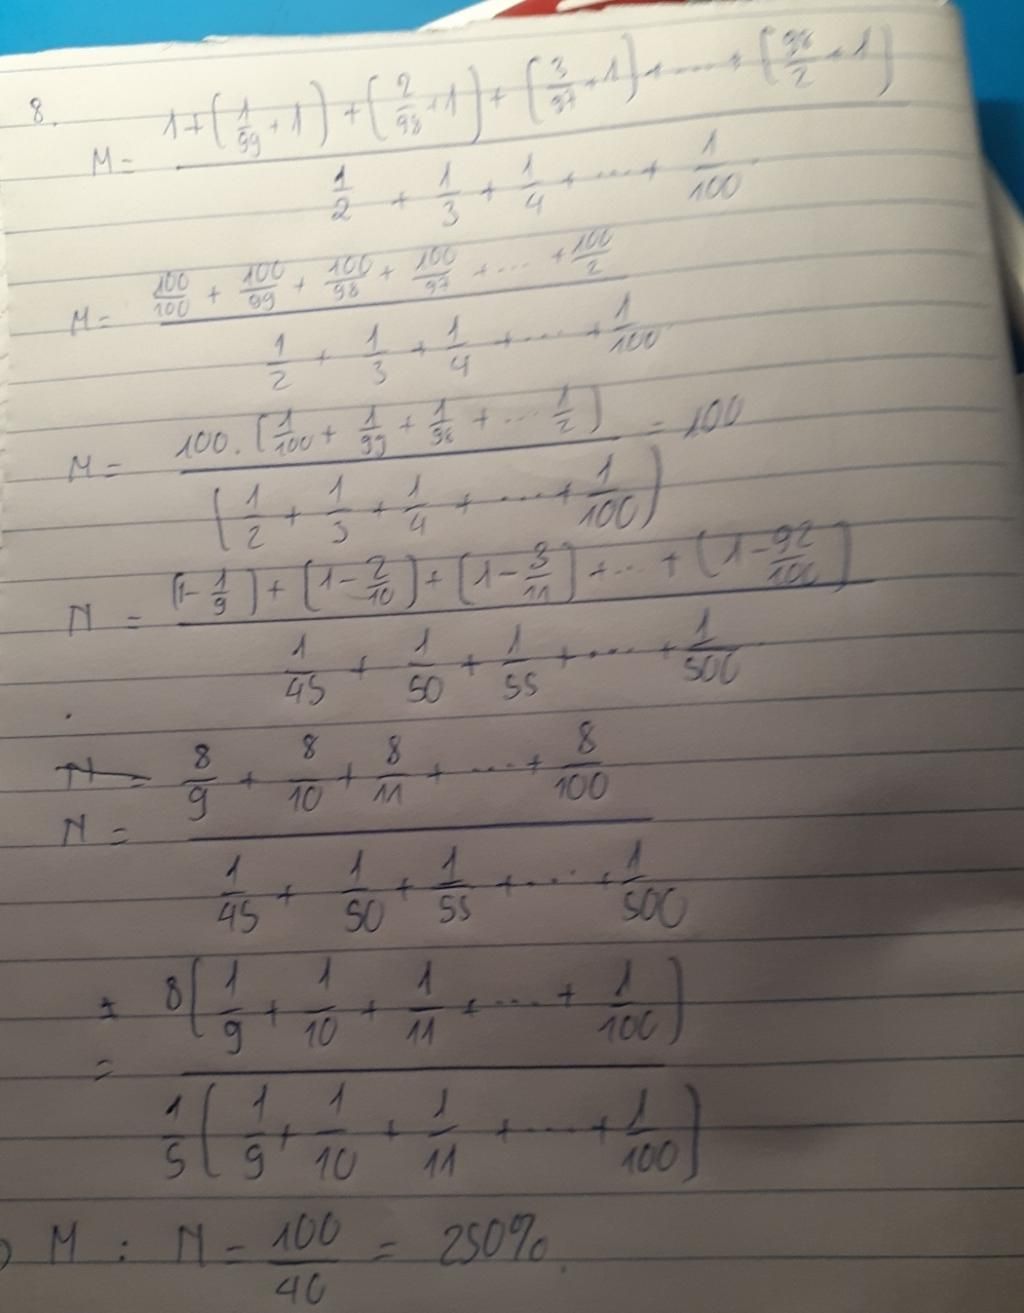 8.
M = 1 + (1/99 + 1) + (2/98 + 1) + (3/97 + 1) + .... + (98/2 + 1)
1/2 + 1/3 + 1/4 + ... + 1/100
M = 100/100 + 100/99 + 100/98 + 100/97 + ... + 100/2
1/2 + 1/3 + 1/4 + ... + 1/100
M = 100. (1/100 + 1/99 + 1/98 + ... 1/2) = 100
(1/2 + 1/3 + 1/4 + ... + 1/100)
N = (1 - 1/9) + (1 - 2/10) + (1 - 3/11) + ... + (1 - 92/100)
1/45 + 1/50 + 1/55 + .... + 1/500
N = 8/9 + 8/10 + 8/11 + ... + 8/100
N =
1/45 + 1/50 + 1/55 + ... + 1/500
= 8(1/9 + 1/10 + 1/11 + ... + 1/100)
=
1/5 (1/9 + 1/10 + 1/11 + .... + 1/100)
) M : N = 100/40 = 250%.